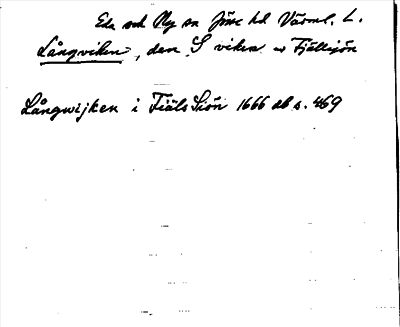 Eda och Ny sn Jösse hd Värml. L.
Långviken, den S viken av Fjällsjön
Långwijken i Fiäls Siön 1666 ab s. 469